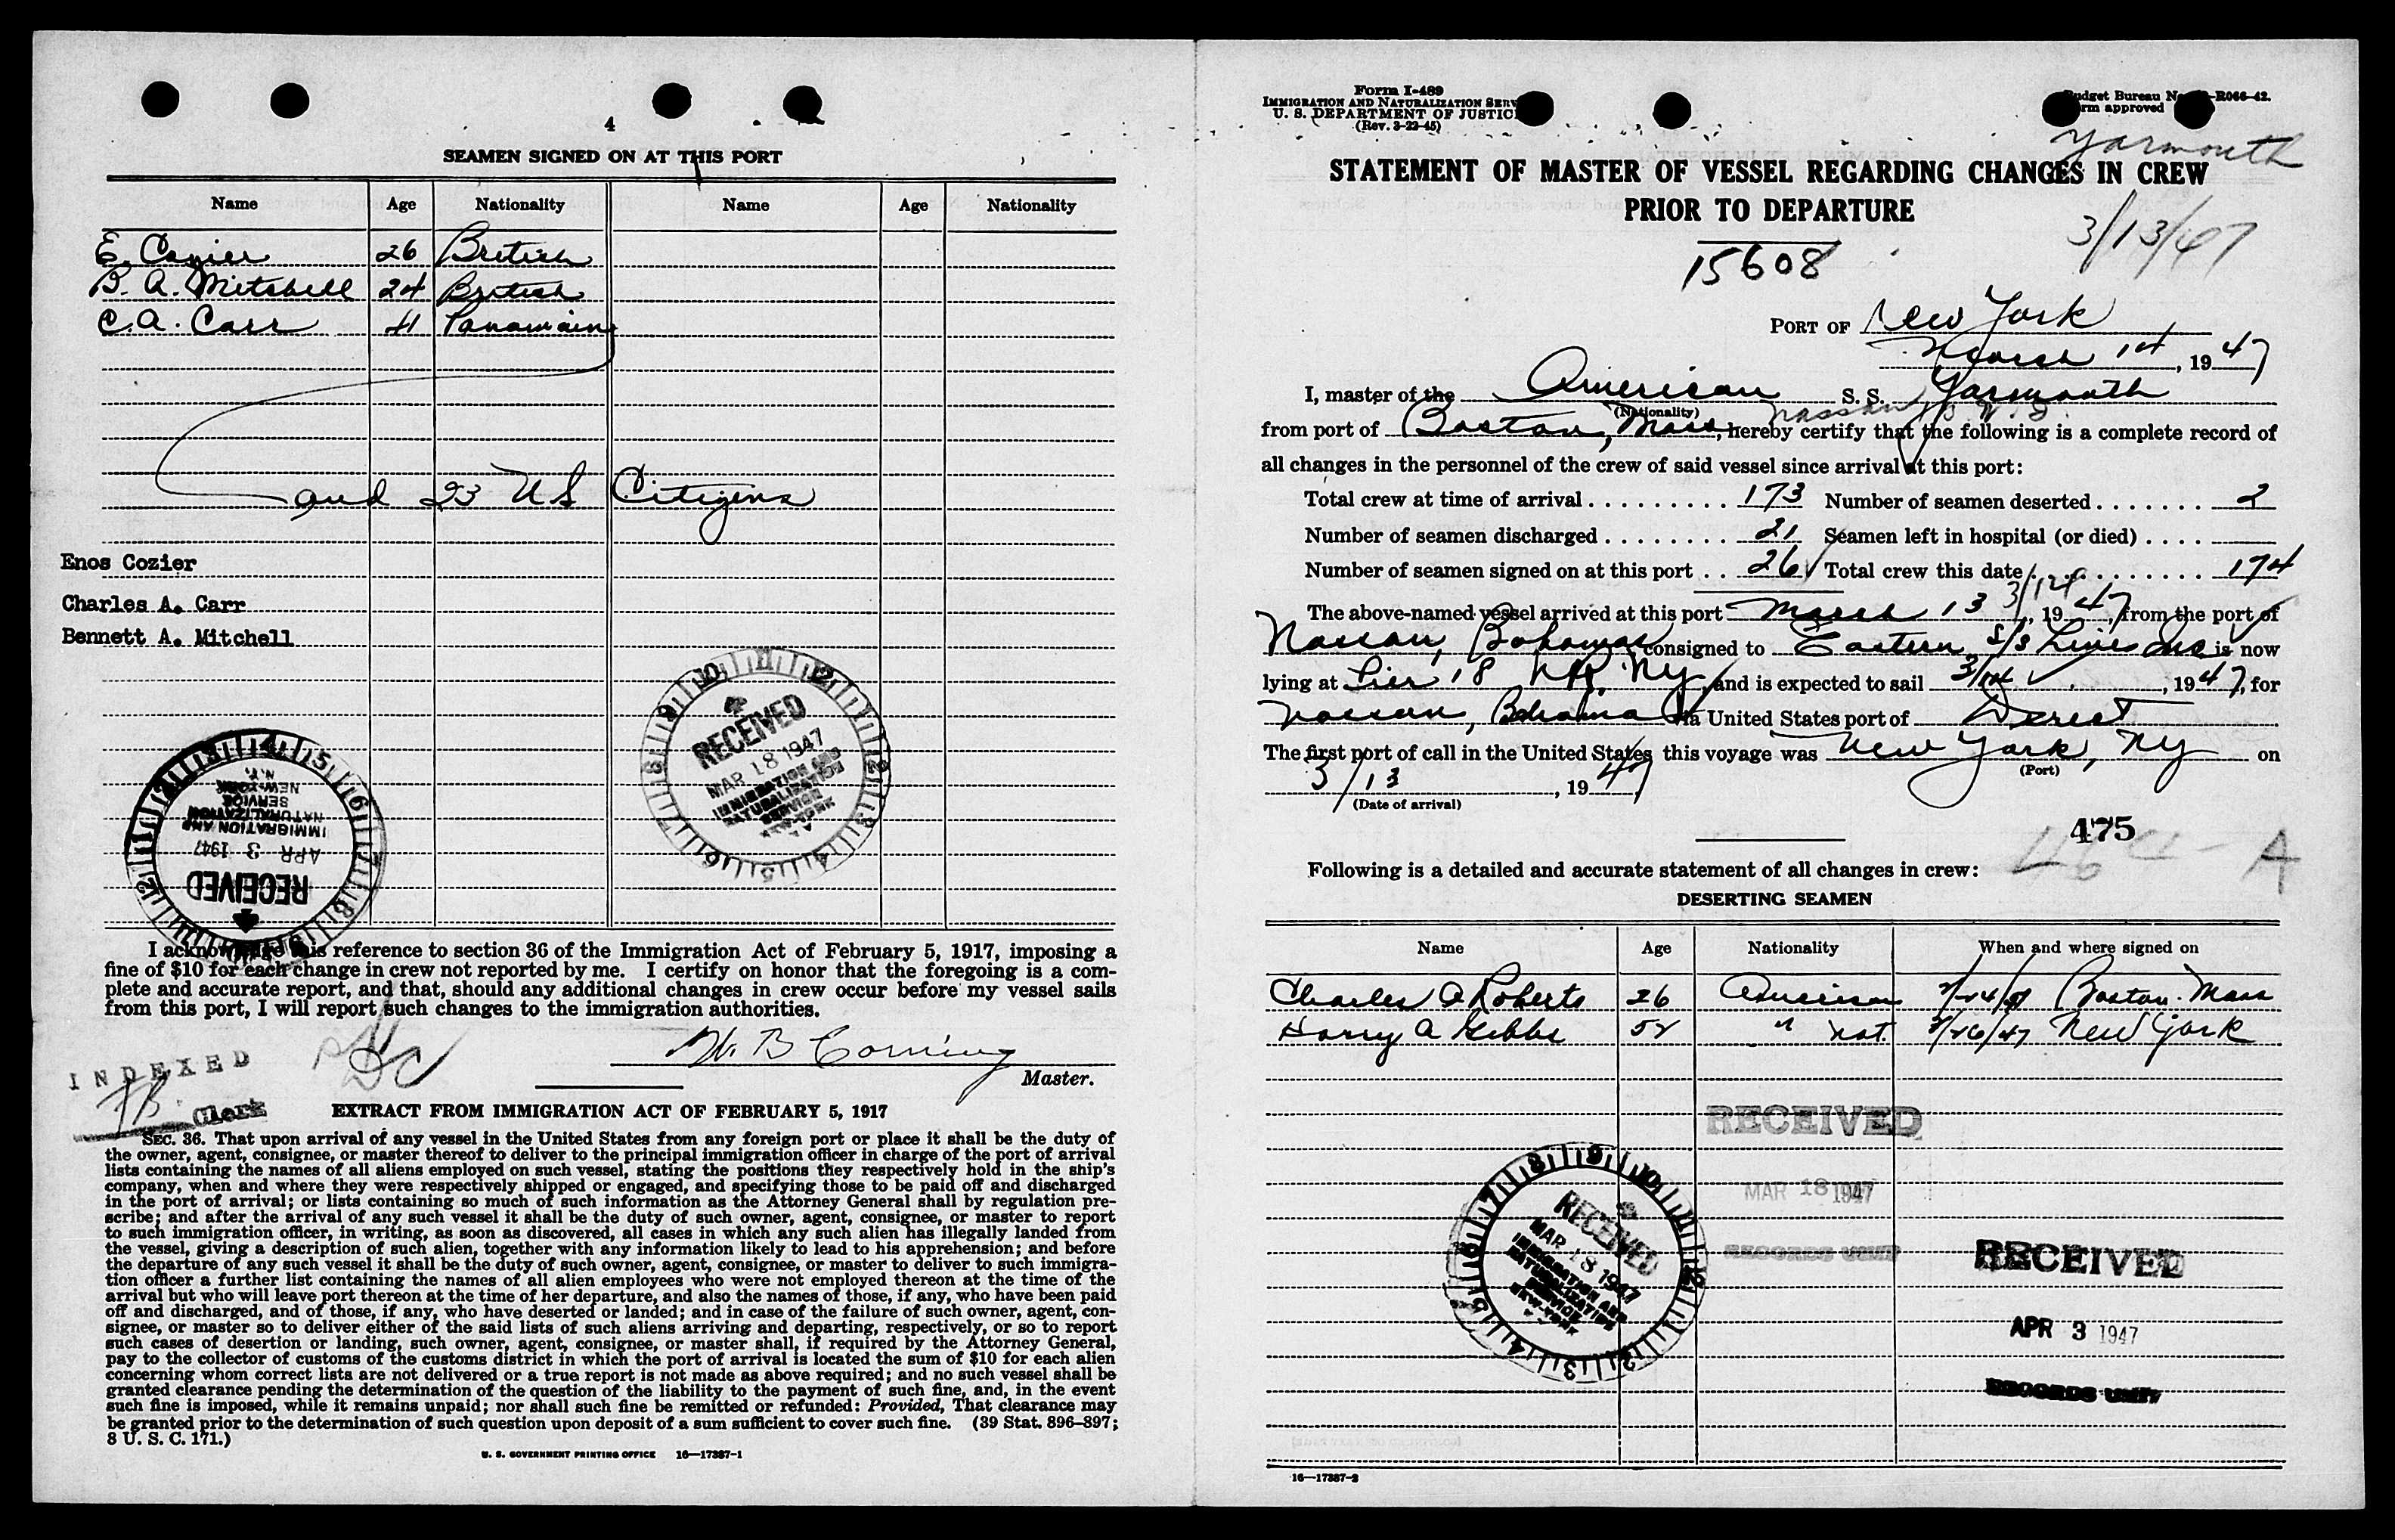 4
SEAMEN SIGNED ON AT THIS PORT
Name Age Nationality Name Age Nationality
E. Cozier 26 British
B. A. Mitchell 24 British
C. A. Carr 41 Panamain
and 23 US Citizens
Enos Cozier
Charles A. Carr
Bennett A. Mitchell
RECEIVED
MAR 18 1947
IMMIGRATION AND
NATURALIZATION
SERVICE
NEW-YORK
RECEIVED
APR 3 1947
IMMIGRATION AND
NATURALIZATION
SERVICE
NEW-YORK
N.Y.
I acknowledge this reference to section 36 of the Immigration Act of February 5, 1917, imposing a
fine of $10 for each change in crew not reported by me. I certify on honor that the foregoing is a com-
plete and accurate report, and that, should any additional changes in crew occur before my vessel sails
from this port, I will report such changes to the immigration authorities.
W. B Corning
Master.
INDEXED
Clerk
EXTRACT FROM IMMIGRATION ACT OF FEBRUARY 5, 1917
SEC. 36. That upon arrival of any vessel in the United States from any foreign port or place it shall be the duty of
the owner, agent, consignee, or master thereof to deliver to the principal immigration officer in charge of the port of arrival
lists containing the names of all aliens employed on such vessel, stating the positions they respectively hold in the ship's
company, when and where they were respectively shipped or engaged, and specifying those to be paid off and discharged
in the port of arrival; or lists containing so much of such information as the Attorney General shall by regulation pre-
scribe; and after the arrival of any such vessel it shall be the duty of such owner, agent, consignee, or master to report
to such immigration officer, in writing, as soon as discovered, all cases in which any such alien has illegally landed from
the vessel, giving a description of such alien, together with any information likely to lead to his apprehension; and before
the departure of any such vessel it shall be the duty of such owner, agent, consignee, or master to deliver to such immigra-
tion officer a further list containing the names of all alien employees who were not employed thereon at the time of the
arrival but who will leave port thereon at the time of her departure, and also the names of those, if any, who have been paid
off and discharged, and of those, if any, who have deserted or landed; and in case of the failure of such owner, agent, con-
signee, or master so to deliver either of the said lists of such aliens arriving and departing, respectively, or so to report
such cases of desertion or landing, such owner, agent, consignee, or master shall, if required by the Attorney General,
pay to the collector of customs of the customs district in which the port of arrival is located the sum of $10 for each alien
concerning whom correct lists are not delivered or a true report is not made as above required; and no such vessel shall be
granted clearance pending the determination of the question of the liability to the payment of such fine, and, in the event
such fine is imposed, while it remains unpaid; nor shall such fine be remitted or refunded: Provided, That clearance may
be granted prior to the determination of such question upon deposit of a sum sufficient to cover such fine. (39 Stat. 896–897;
8 U. S. C. 171.)
U. S. GOVERNMENT PRINTING OFFICE 16—17387-1
Form I-489
IMMIGRATION AND NATURALIZATION SERV
U. S. DEPARTMENT OF JUSTIC
(Rev. 3-22-45)
udget Bureau N -R066-42.
rm approved
Yarmouth
STATEMENT OF MASTER OF VESSEL REGARDING CHANGES IN CREW
PRIOR TO DEPARTURE
3/13/47
15608
PORT OF New York
March 14, 1947
I, master of the American S. S. Yarmouth
(Nationality) Nassau, B.W.I.
from port of Boston, Mass, hereby certify that the following is a complete record of
all changes in the personnel of the crew of said vessel since arrival at this port:
Total crew at time of arrival . . . . . . . . . 173 Number of seamen deserted . . . . . . . 2
Number of seamen discharged . . . . . . . . 21 Seamen left in hospital (or died) . . . .
Number of seamen signed on at this port . . 26 Total crew this date . . . . . . . . . . 174
3/14
The above-named vessel arrived at this port March 13, 1947, from the port of
Nassau, Bahamas consigned to Eastern S/S Lines Inc is now
lying at Pier 18 NR. NY and is expected to sail 3/14, 1947, for
Nassau, Bahama via United States port of Direct
The first port of call in the United States this voyage was New York, NY on
(Port)
3/13, 1947
(Date of arrival)
475
A
Following is a detailed and accurate statement of all changes in crew:
DESERTING SEAMEN
Name Age Nationality When and where signed on
Charles A Roberts 26 American 2/24/47 Boston. Mass
Harry A Gibbs 52 " nat. 2/26/47 New York
RECEIVED
MAR 18 1947
RECORDS UNIT
RECEIVED
MAR 18 1947
IMMIGRATION AND
NATURALIZATION
SERVICE
NEW-YORK
RECEIVED
APR 3 1947
RECORDS UNIT
16—17387-2